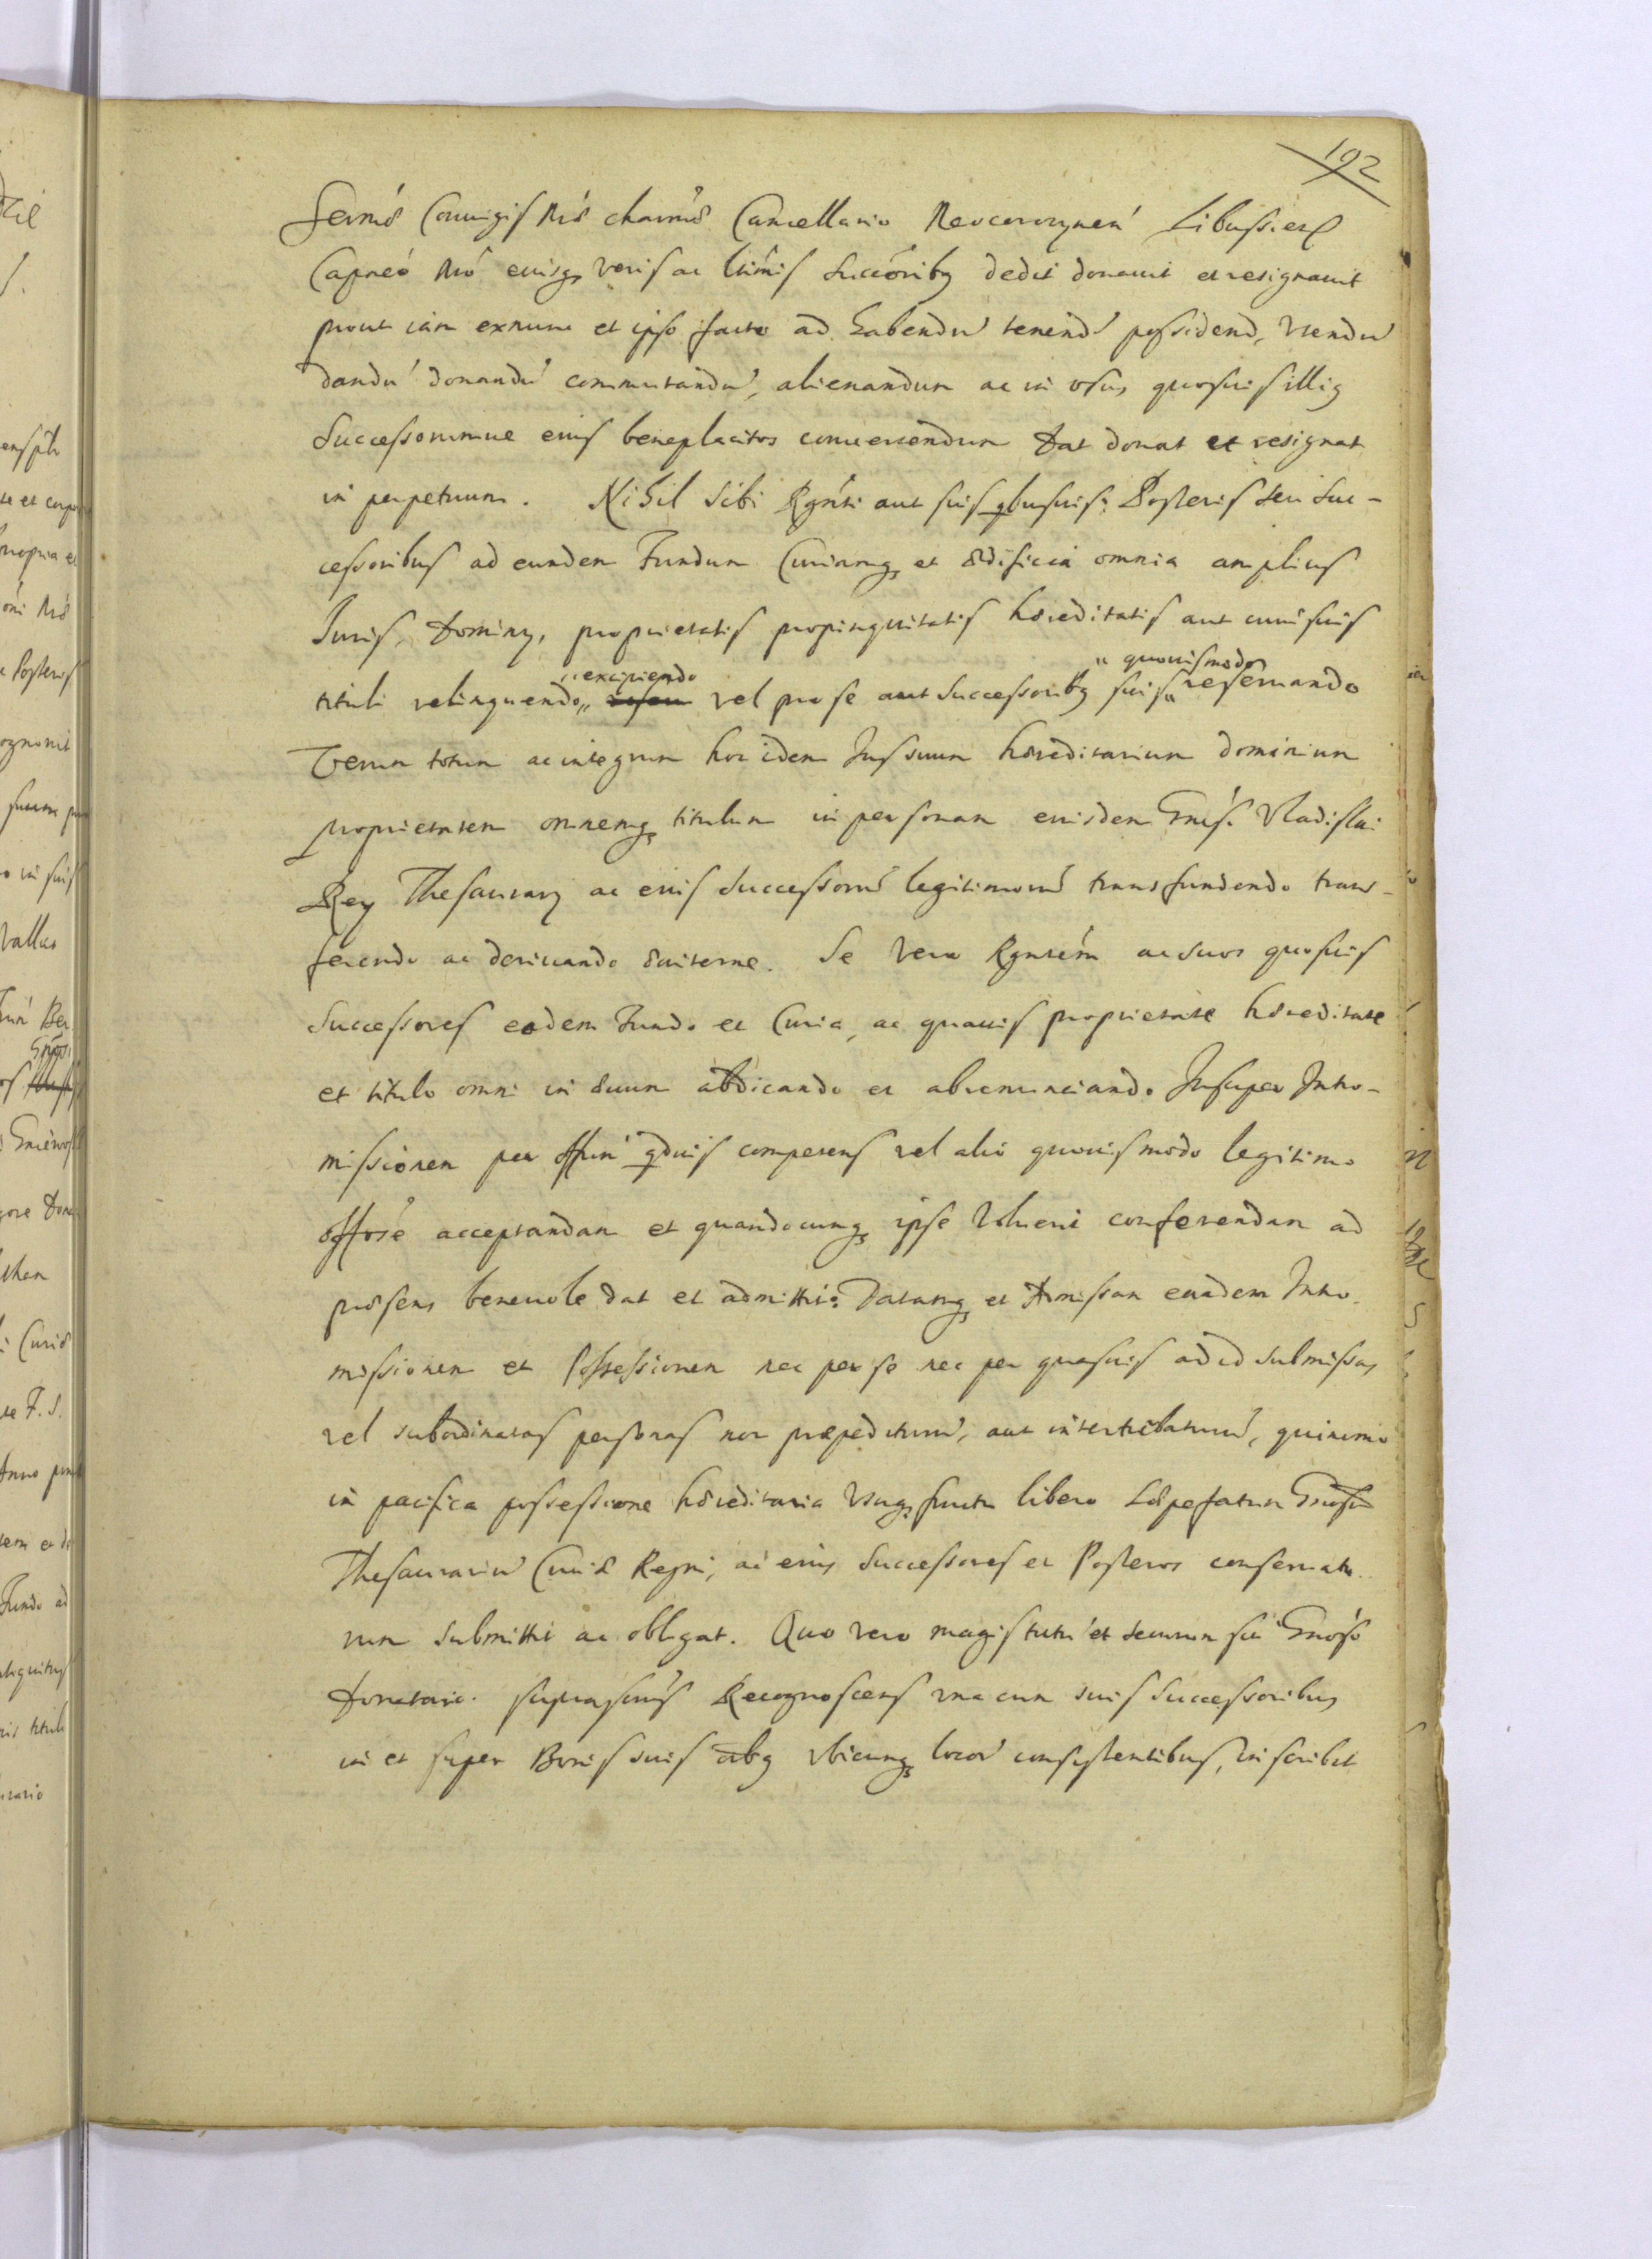 192
Sermæ Coniugis Nræ charmæ Cancellario Neocorczynen Libussien
Capneo Nro eiusq veris ac ltimis Succoribq dedit donauit et resignauit
prout iam exnunc et ipso facto ad habendu tenend possidend, vtendu
dandu donandu commutandu, alienandum ac in vsus quosuis illiq
Successorumue eius beneplacitos conuertendum dat donat et resignat
in perpetuum. Nihil Sibi Rgnti aut suis qbusuis Posteris seu Suc-
cessoribus ad eundem Fundum Curiamq et ædificia omnia amplius
Juris, Dominy, proprietatis propinquitatis hæreditatis aut cuiusuis
excipiendo quouismodo
tituli relinquendo, vel pro se aut Successoribq suis reseruando
Verum totum ac integrum hoc idem Jus suum hæreditarium dominium
proprietatem omnemq titulum in personam eiusdem Gnsi Vladislai
Rey Thesaurary ac eius Successoru legitimoru transfundendo trans-
ferendo ac deriuando æuiterne. Se vero Rgntem ac suos quosuis
Successores eodem Fundo et Curia, ac quauis proprietate hæreditate
et titulo omni in æuum abdicando et abrenunciando. Insuper Intro-
missionem per offm qduis competens vel alio quouismodo legitimo
offose acceptandam et quandocunq ipse Voluerit conferendam ad
præsens beneuole dat et admittit. Datamq et Admissam eandem Intro-
missionem et Possessionem nec per se nec per quasuis ad id submissas
vel subordinatas personas non præpediturum, aut inter turbaturum, quinimo
in pacifica possessione hæreditaria Vsuq fructu libero sæpefatum Gnosu
Thesaurariu Curiæ Regni, ac eius Successores et Posteros conseruatu-
rum submittit ac obligat. Quo vero magis tutu et securum sit Gnoso
Donatario suprascrus Recognoscens vna cum suis Successoribus
in et super Bonis suis oibq vbicunq locor consistentibus, inscribit